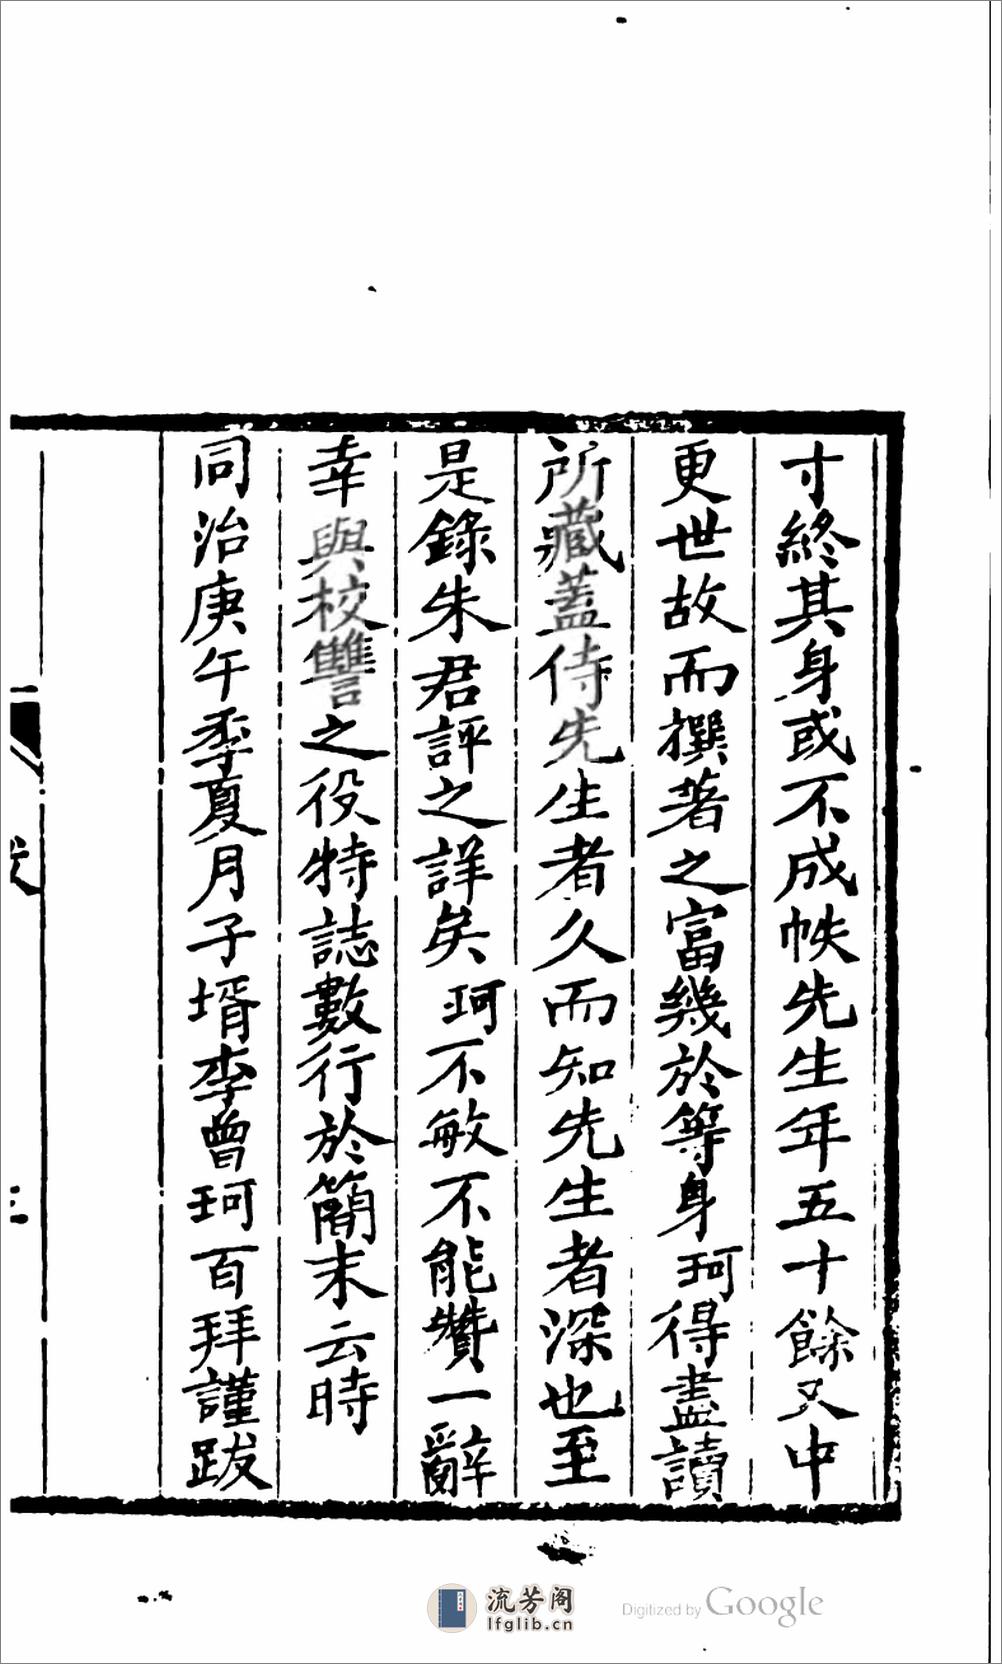 寸終其身或不成帙先生年五十餘又中
更世故而撰著之富幾於等身珂得盡讀
所藏蓋侍先生者久而知先生者深也至
是錄朱君評之詳矣珂不敏不能贊一辭
幸與校讐之役特誌數行於簡末云時
同治庚午季夏月子壻李曾珂百拜謹跋
流芳阁
lfglib.cn
Digitized by Google